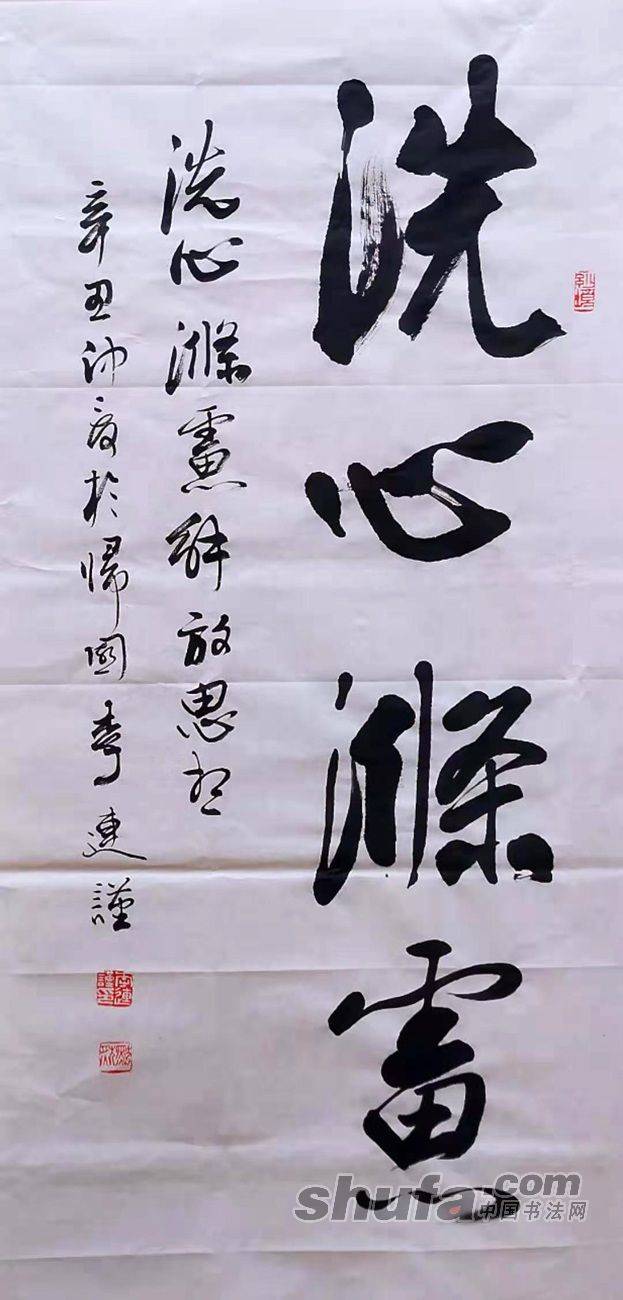 洗心滌慮
洗心滌慮解放思想
辛丑仲夏於歸園李連謹
shufa.com
中国书法网